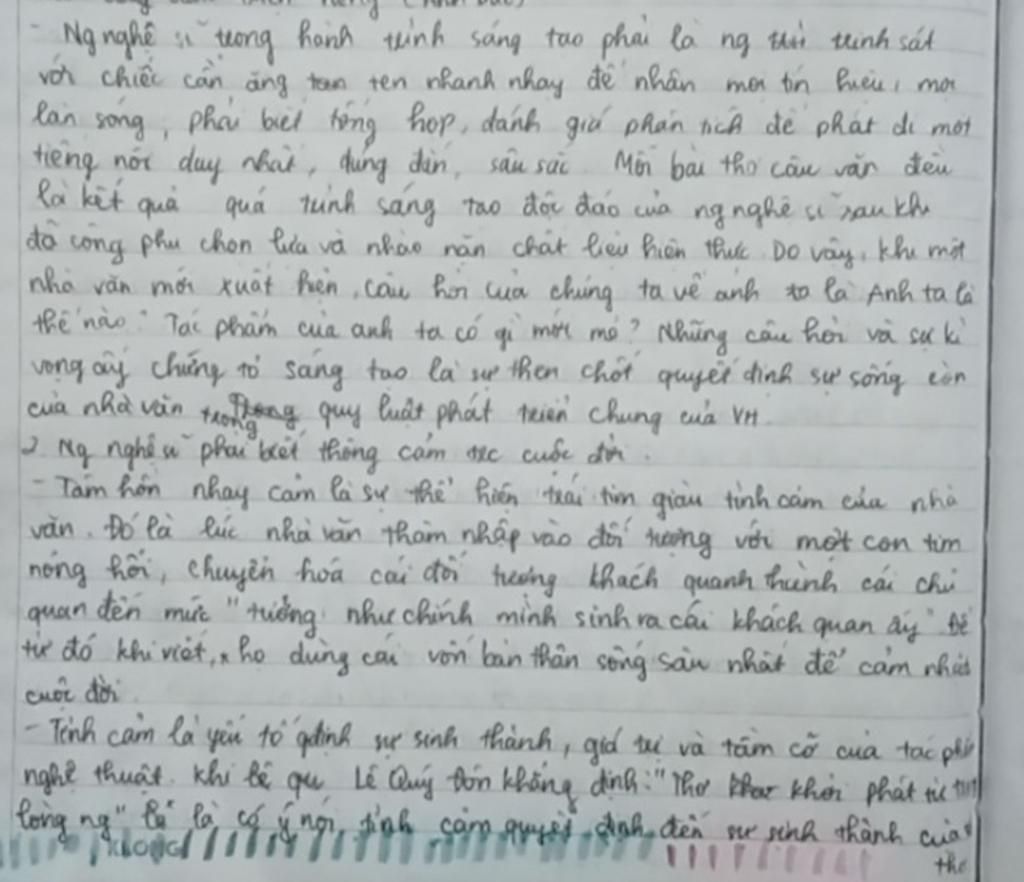 - Ng nghệ sĩ trong hành trình sáng tạo phải là ng trinh sát
với chiếc cần ăng ten nhanh nhạy để nhận mọi tín hiệu, mọi
làn sóng, phải biết tổng hợp, đánh giá phân tích để phát đi một
tiếng nói duy nhất, đúng đắn, sâu sắc. Mỗi bài thơ câu văn đều
là kết quả quá trình sáng tạo độc đáo của ng nghệ sĩ sau khi
đã công phu chọn lựa và nhào nặn chất liệu hiện thực. Do vậy, khi một
nhà văn mới xuất hiện, câu hỏi của chúng ta về anh ta là Anh ta là
thế nào? Tác phẩm của anh ta có gì mới mẻ? Những câu hỏi và sự kì
vọng ấy chứng tỏ sáng tạo là sự then chốt quyết định sự sống còn
của nhà văn trong quy luật phát triển chung của VH.
2. Ng nghệ sĩ phải biết thông cảm cuộc đời.
- Tâm hồn nhạy cảm là sự thể hiện trái tim giàu tình cảm của nhà
văn. Đó là lúc nhà văn thâm nhập vào đối tượng với một con tim
nóng hổi, chuyển hoá cái đối tượng khách quanh thành cái chủ
quan đến mức "tưởng như chính mình sinh ra cái khách quan ấy" Để
từ đó khi viết, họ dùng cái vốn bản thân sống sâu nhất để cảm nhận
cuộc đời.
- Tình cảm là yếu tố qđịnh sự sinh thành, giá trị và tầm cỡ của tác
nghệ thuật. Khi Lê Quý Đôn khẳng định: "Thơ khởi phát từ
lòng ng" là có ý nói, tình cảm quyết định đến sự sinh thành của
thơ
KLONG